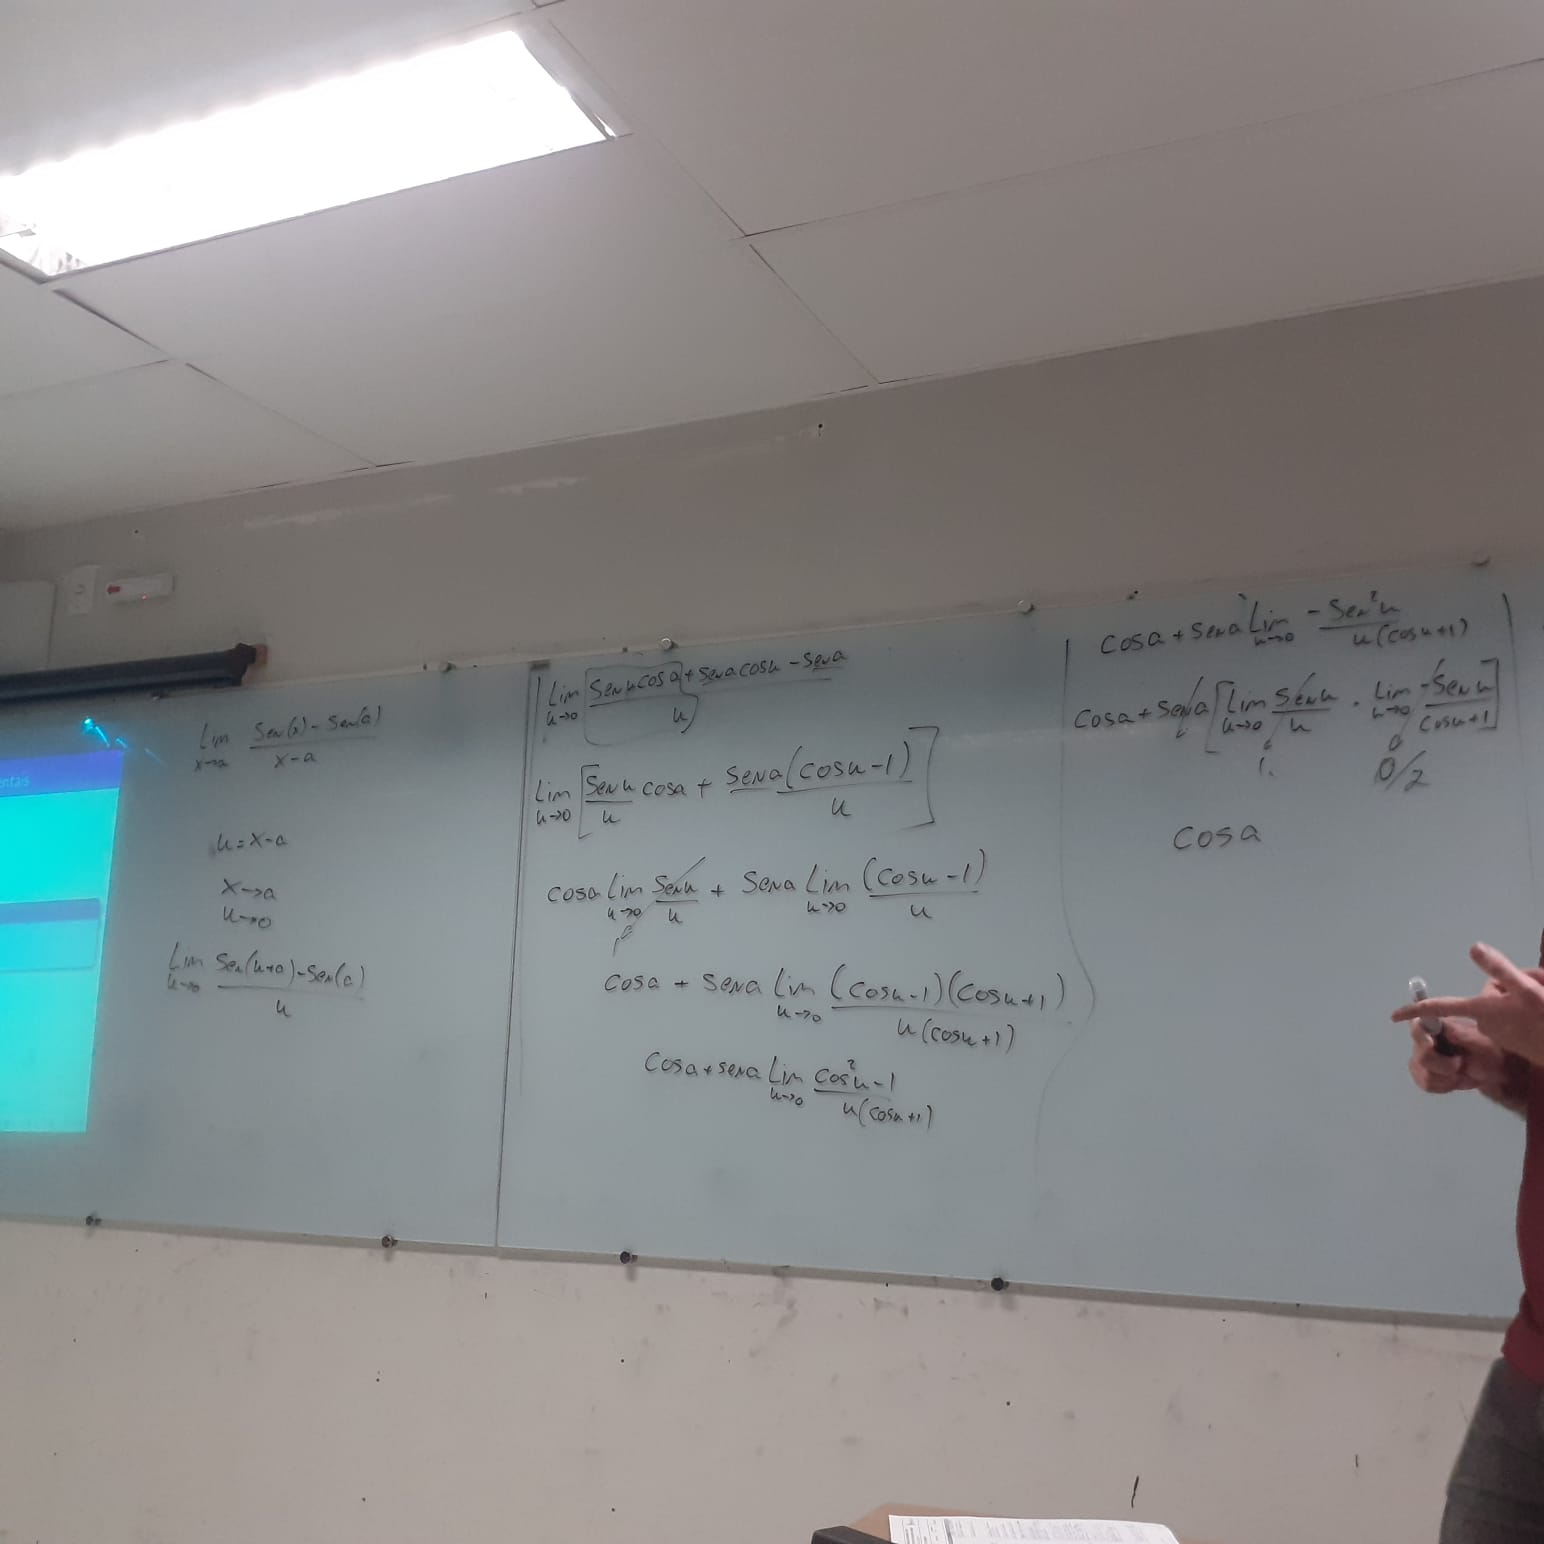 ntais
Lim x→a (Sen(x) - Sen(a))/(x-a)
u = x-a
x→a
u→0
Lim u→0 (Sen(u+a) - Sen(a))/u
Lim u→0 (Sen u cos a + Sen a cos u - Sen a)/u
Lim u→0 [(Sen u)/u cos a + (Sen a (cos u - 1))/u]
cos a Lim u→0 (Sen u)/u + Sen a Lim u→0 (cos u - 1)/u
1
cos a + Sen a Lim u→0 ((cos u - 1)(cos u + 1))/(u(cos u + 1))
cos a + sen a Lim u→0 (cos²u - 1)/(u(cos u + 1))
cos a + sen a Lim u→0 (-Sen²u)/(u(cos u + 1))
cos a + sen a [Lim u→0 (Sen u)/u · Lim u→0 (-Sen u)/(cos u + 1)]
1. 0/2
cos a